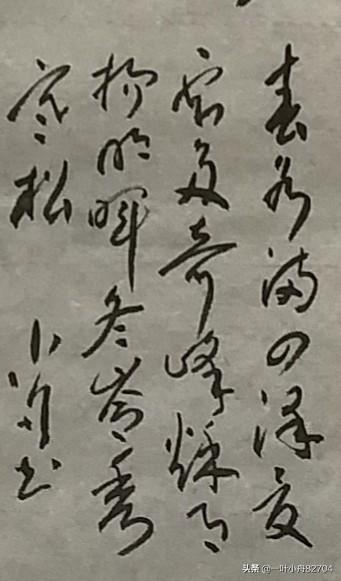 春水满四泽夏
云多奇峰秋月
扬明晖冬岭秀
寒松
小舟书
头条 @一叶小舟82704